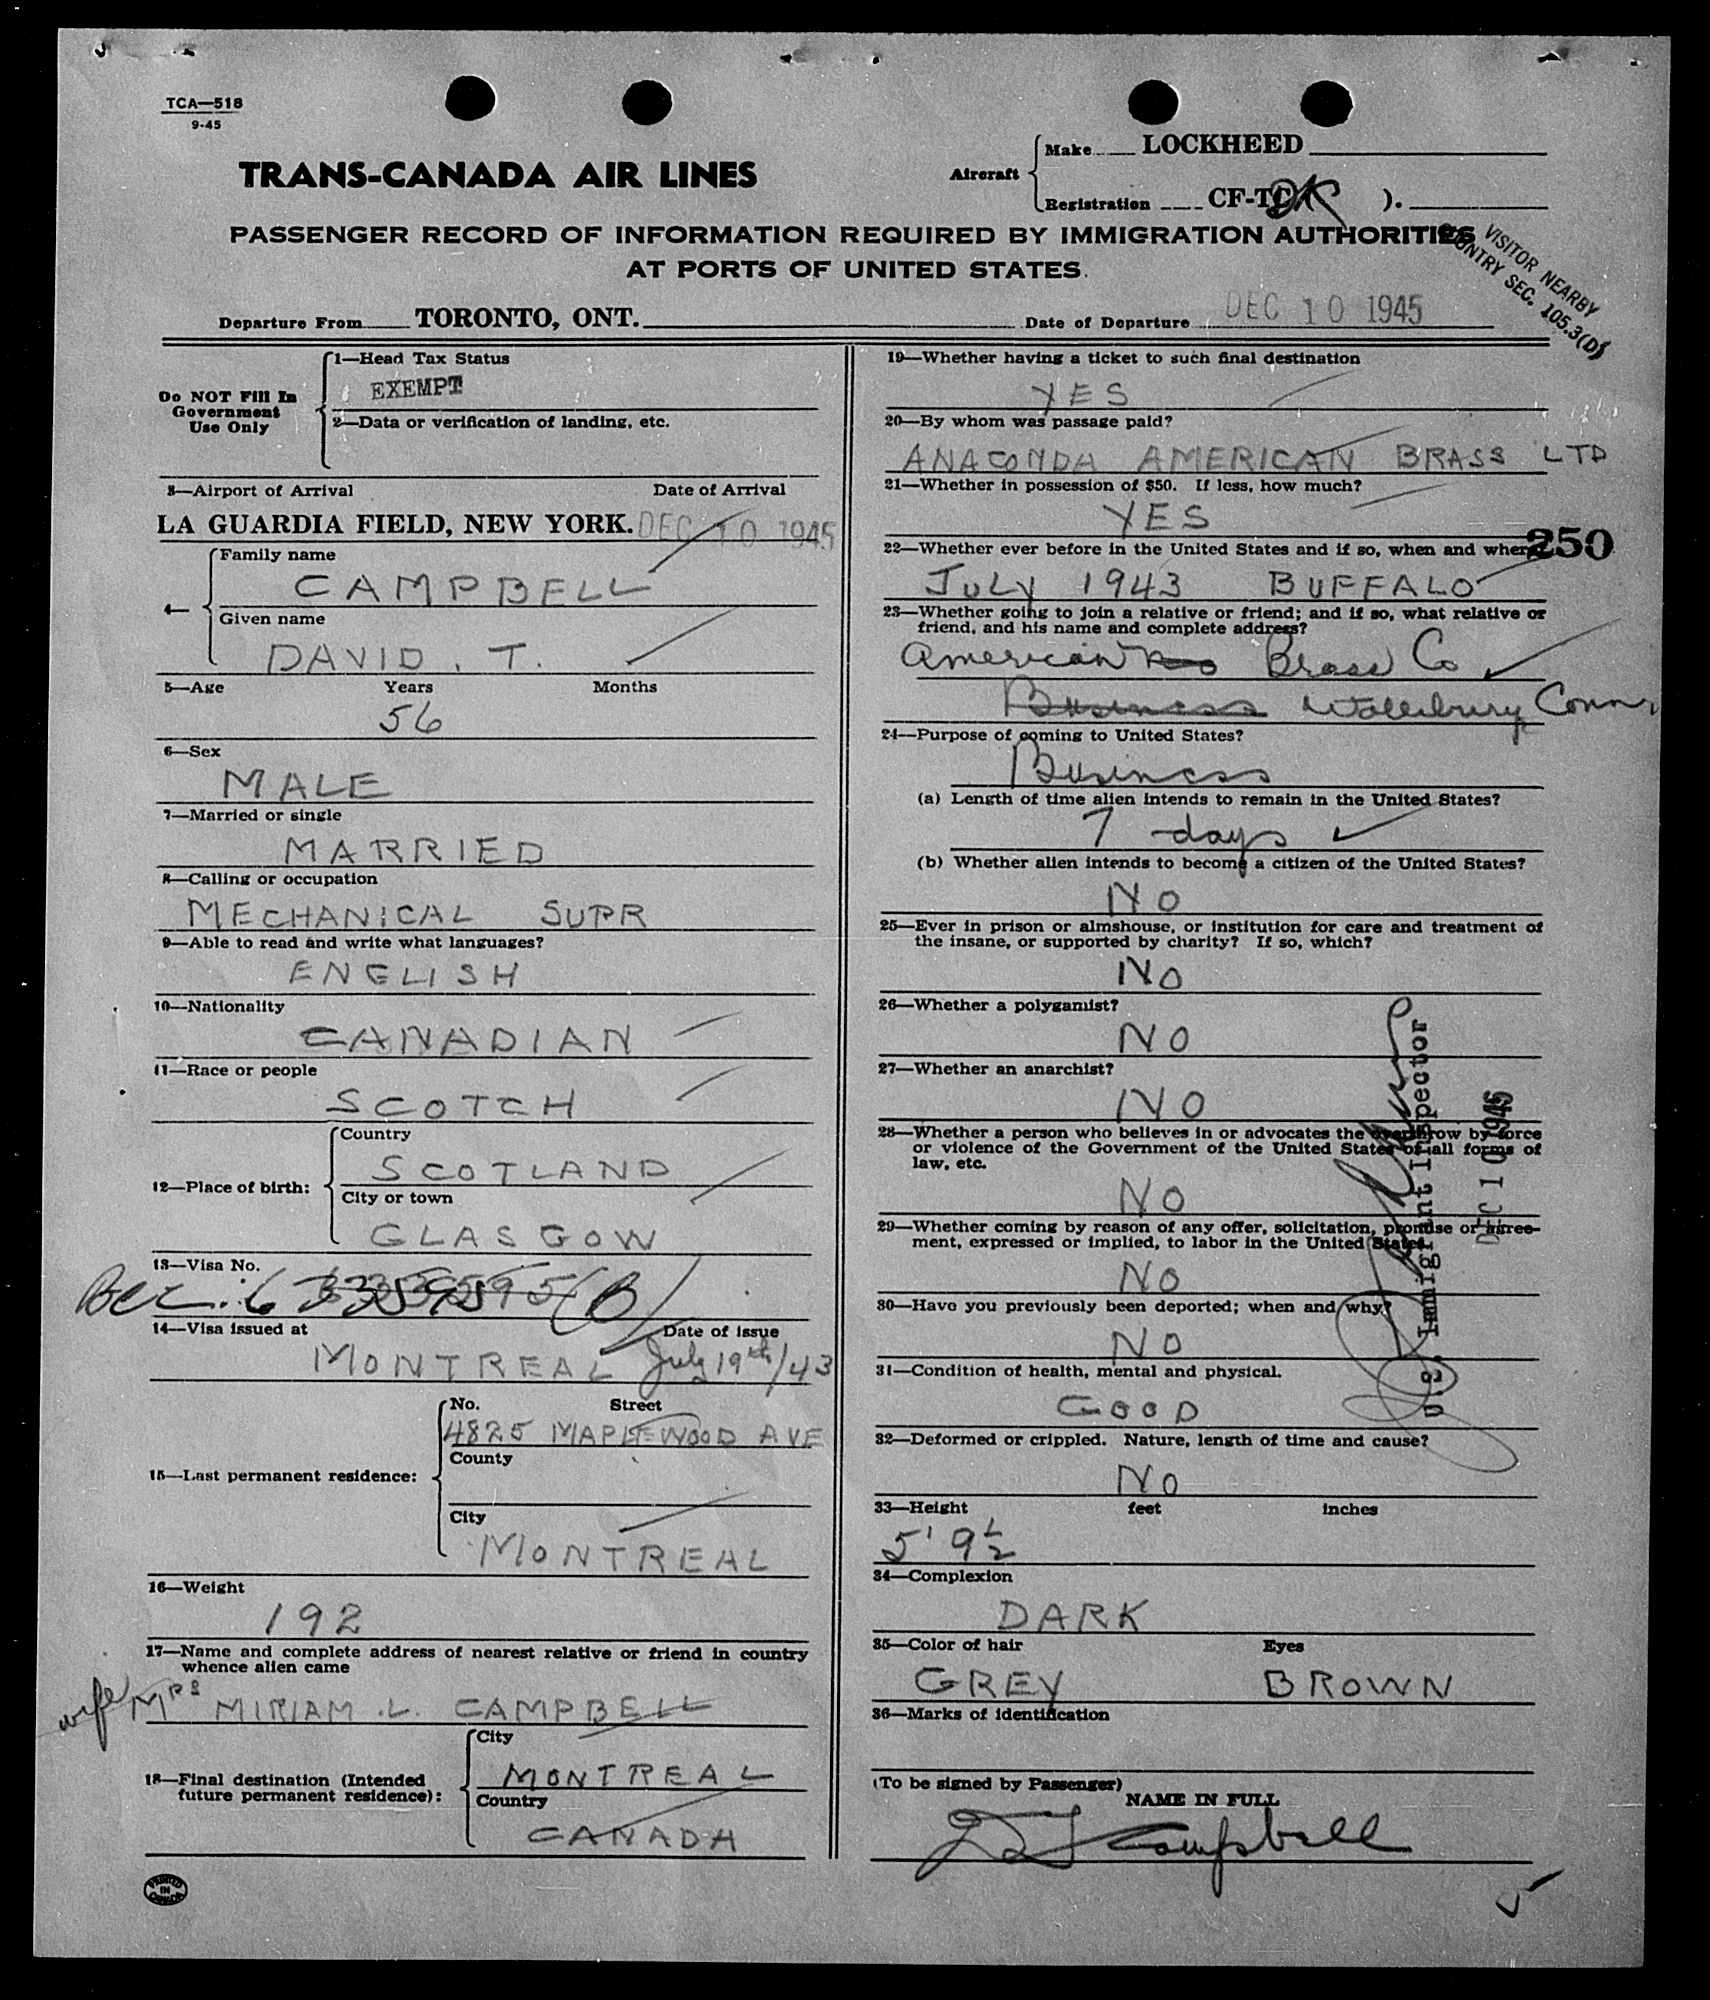 TCA—518
9-45
TRANS-CANADA AIR LINES
Aircraft
Make LOCKHEED
Registration CF-TC ).
PASSENGER RECORD OF INFORMATION REQUIRED BY IMMIGRATION AUTHORITIES
AT PORTS OF UNITED STATES.
VISITOR NEARBY
COUNTRY SEC. 105.3(D)
Departure From TORONTO, ONT. Date of Departure DEC 10 1945
Do NOT Fill In
Government
Use Only
1—Head Tax Status
EXEMPT
2—Data or verification of landing, etc.
3—Airport of Arrival Date of Arrival
LA GUARDIA FIELD, NEW YORK. DEC 10 1945
4—
Family name
CAMPBELL
Given name
DAVID. T.
5—Age Years Months
56
6—Sex
MALE
7—Married or single
MARRIED
8—Calling or occupation
MECHANICAL SUPR
9—Able to read and write what languages?
ENGLISH
10—Nationality
CANADIAN
11—Race or people
SCOTCH
12—Place of birth:
Country
SCOTLAND
City or town
GLASGOW
13—Visa No.
14—Visa issued at Date of issue
MONTREAL July 19th/43
15—Last permanent residence:
No. Street
4825 MAPLEWOOD AVE
County
City
MONTREAL
16—Weight
192
17—Name and complete address of nearest relative or friend in country
whence alien came
wife MRS MIRIAM .L. CAMPBELL
18—Final destination (Intended
future permanent residence):
City
MONTREAL
Country
CANADA
PRINTED
IN
CANADA
19—Whether having a ticket to such final destination
YES
20—By whom was passage paid?
ANACONDA AMERICAN BRASS LTD
21—Whether in possession of $50. If less, how much?
YES
22—Whether ever before in the United States and if so, when and where?
250
JULY 1943 BUFFALO
23—Whether going to join a relative or friend; and if so, what relative or
friend, and his name and complete address?
American Brass Co
Business Waterbury Conn.
24—Purpose of coming to United States?
Business
(a) Length of time alien intends to remain in the United States?
7 days
(b) Whether alien intends to become a citizen of the United States?
NO
25—Ever in prison or almshouse, or institution for care and treatment of
the insane, or supported by charity? If so, which?
NO
26—Whether a polygamist?
NO
27—Whether an anarchist?
NO
28—Whether a person who believes in or advocates the overthrow by force
or violence of the Government of the United States or all forms of
law, etc.
NO
29—Whether coming by reason of any offer, solicitation, promise or agree-
ment, expressed or implied, to labor in the United States
NO
30—Have you previously been deported; when and why?
NO
31—Condition of health, mental and physical.
GOOD
32—Deformed or crippled. Nature, length of time and cause?
NO
33—Height feet inches
5' 9½
34—Complexion
DARK
35—Color of hair Eyes
GREY BROWN
36—Marks of identification
(To be signed by Passenger)
NAME IN FULL
D T Campbell
U.S. Immigrant Inspector
DEC 10 1945